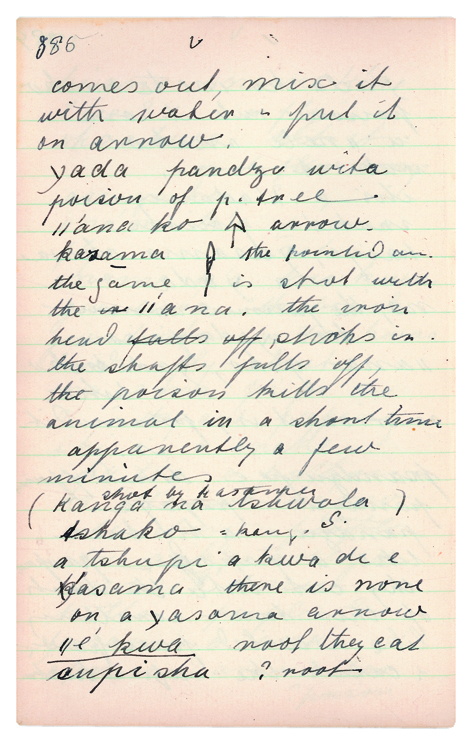 386
comes out, mix it
with water - put it
on arrow.
yada pandzu wita
poison of p. tree
ǁana ko arrow.
kasama the pointed arr.
the game is shot with
the ǁana. the iron
head falls off, sticks in.
the shafts falls off,
the poison kills the
animal in a short time
apparently a few
minutes
shot by kasama
( kanga na tsuwola )
tshako = kang. S.
a tshupi a kwa de e
kasama there is none
on a yasama arrow
ǁé kwa root they eat
cupisha ? root